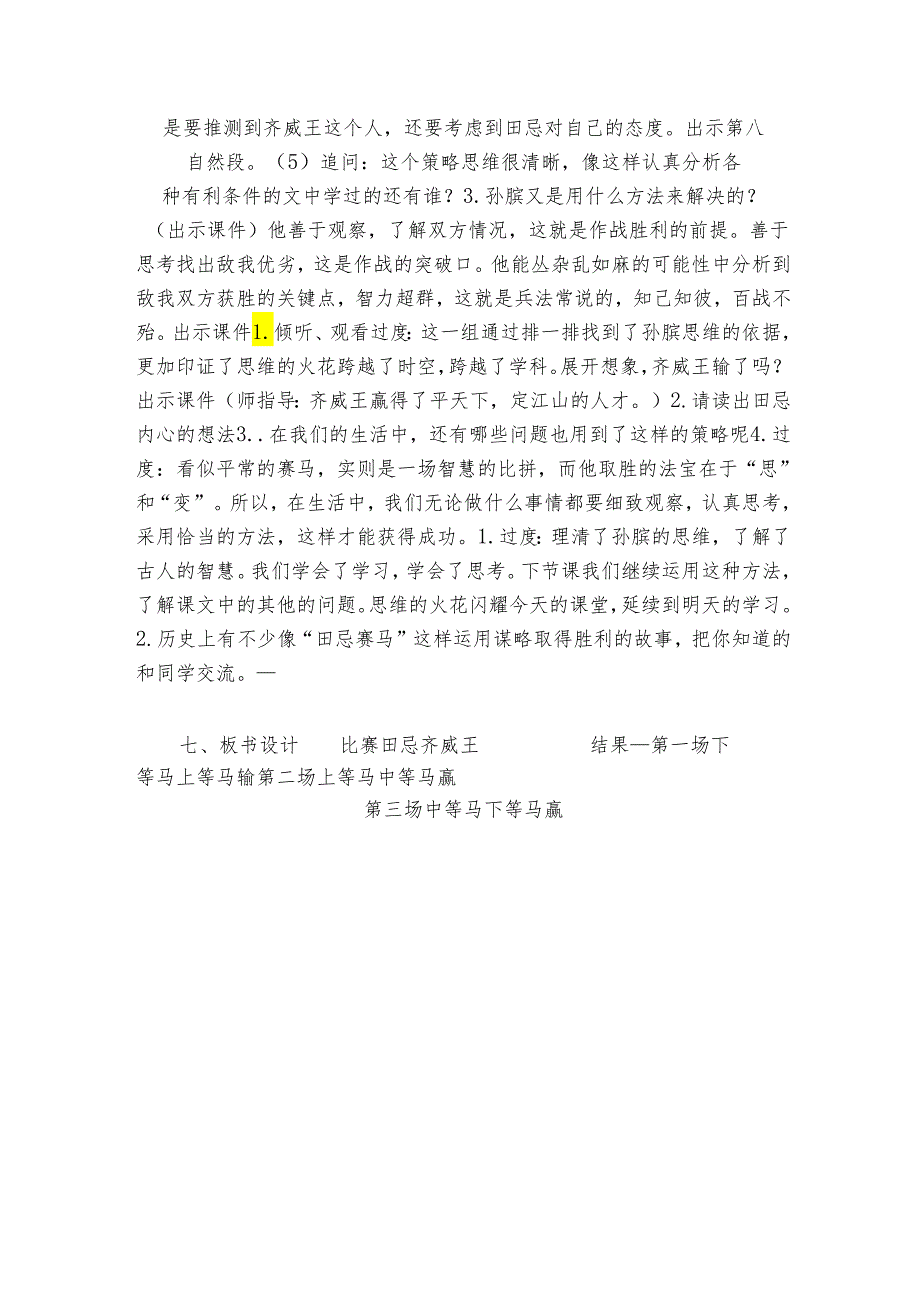 是要推测到齐威王这个人，还要考虑到田忌对自己的态度。出示第八
自然段。（5）追问：这个策略思维很清晰，像这样认真分析各
种有利条件的文中学过的还有谁？3.孙膑又是用什么方法来解决的？
（出示课件）他善于观察，了解双方情况，这就是作战胜利的前提。善于
思考找出敌我优劣，这是作战的突破口。他能丛杂乱如麻的可能性中分析到
敌我双方获胜的关键点，智力超群，这就是兵法常说的，知己知彼，百战不
殆。出示课件1.倾听、观看过度：这一组通过排一排找到了孙膑思维的依据，
更加印证了思维的火花跨越了时空，跨越了学科。展开想象，齐威王输了吗？
出示课件（师指导：齐威王赢得了平天下，定江山的人才。）2.请读出田忌
内心的想法3..在我们的生活中，还有哪些问题也用到了这样的策略呢4.过
度：看似平常的赛马，实则是一场智慧的比拼，而他取胜的法宝在于“思”
和“变”。所以，在生活中，我们无论做什么事情都要细致观察，认真思考，
采用恰当的方法，这样才能获得成功。1.过度：理清了孙膑的思维，了解了
古人的智慧。我们学会了学习，学会了思考。下节课我们继续运用这种方法，
了解课文中的其他的问题。思维的火花闪耀今天的课堂，延续到明天的学习。
2.历史上有不少像“田忌赛马”这样运用谋略取得胜利的故事，把你知道的
和同学交流。—
七、板书设计 比赛田忌齐威王 结果—第一场下
等马上等马输第二场上等马中等马赢
第三场中等马下等马赢